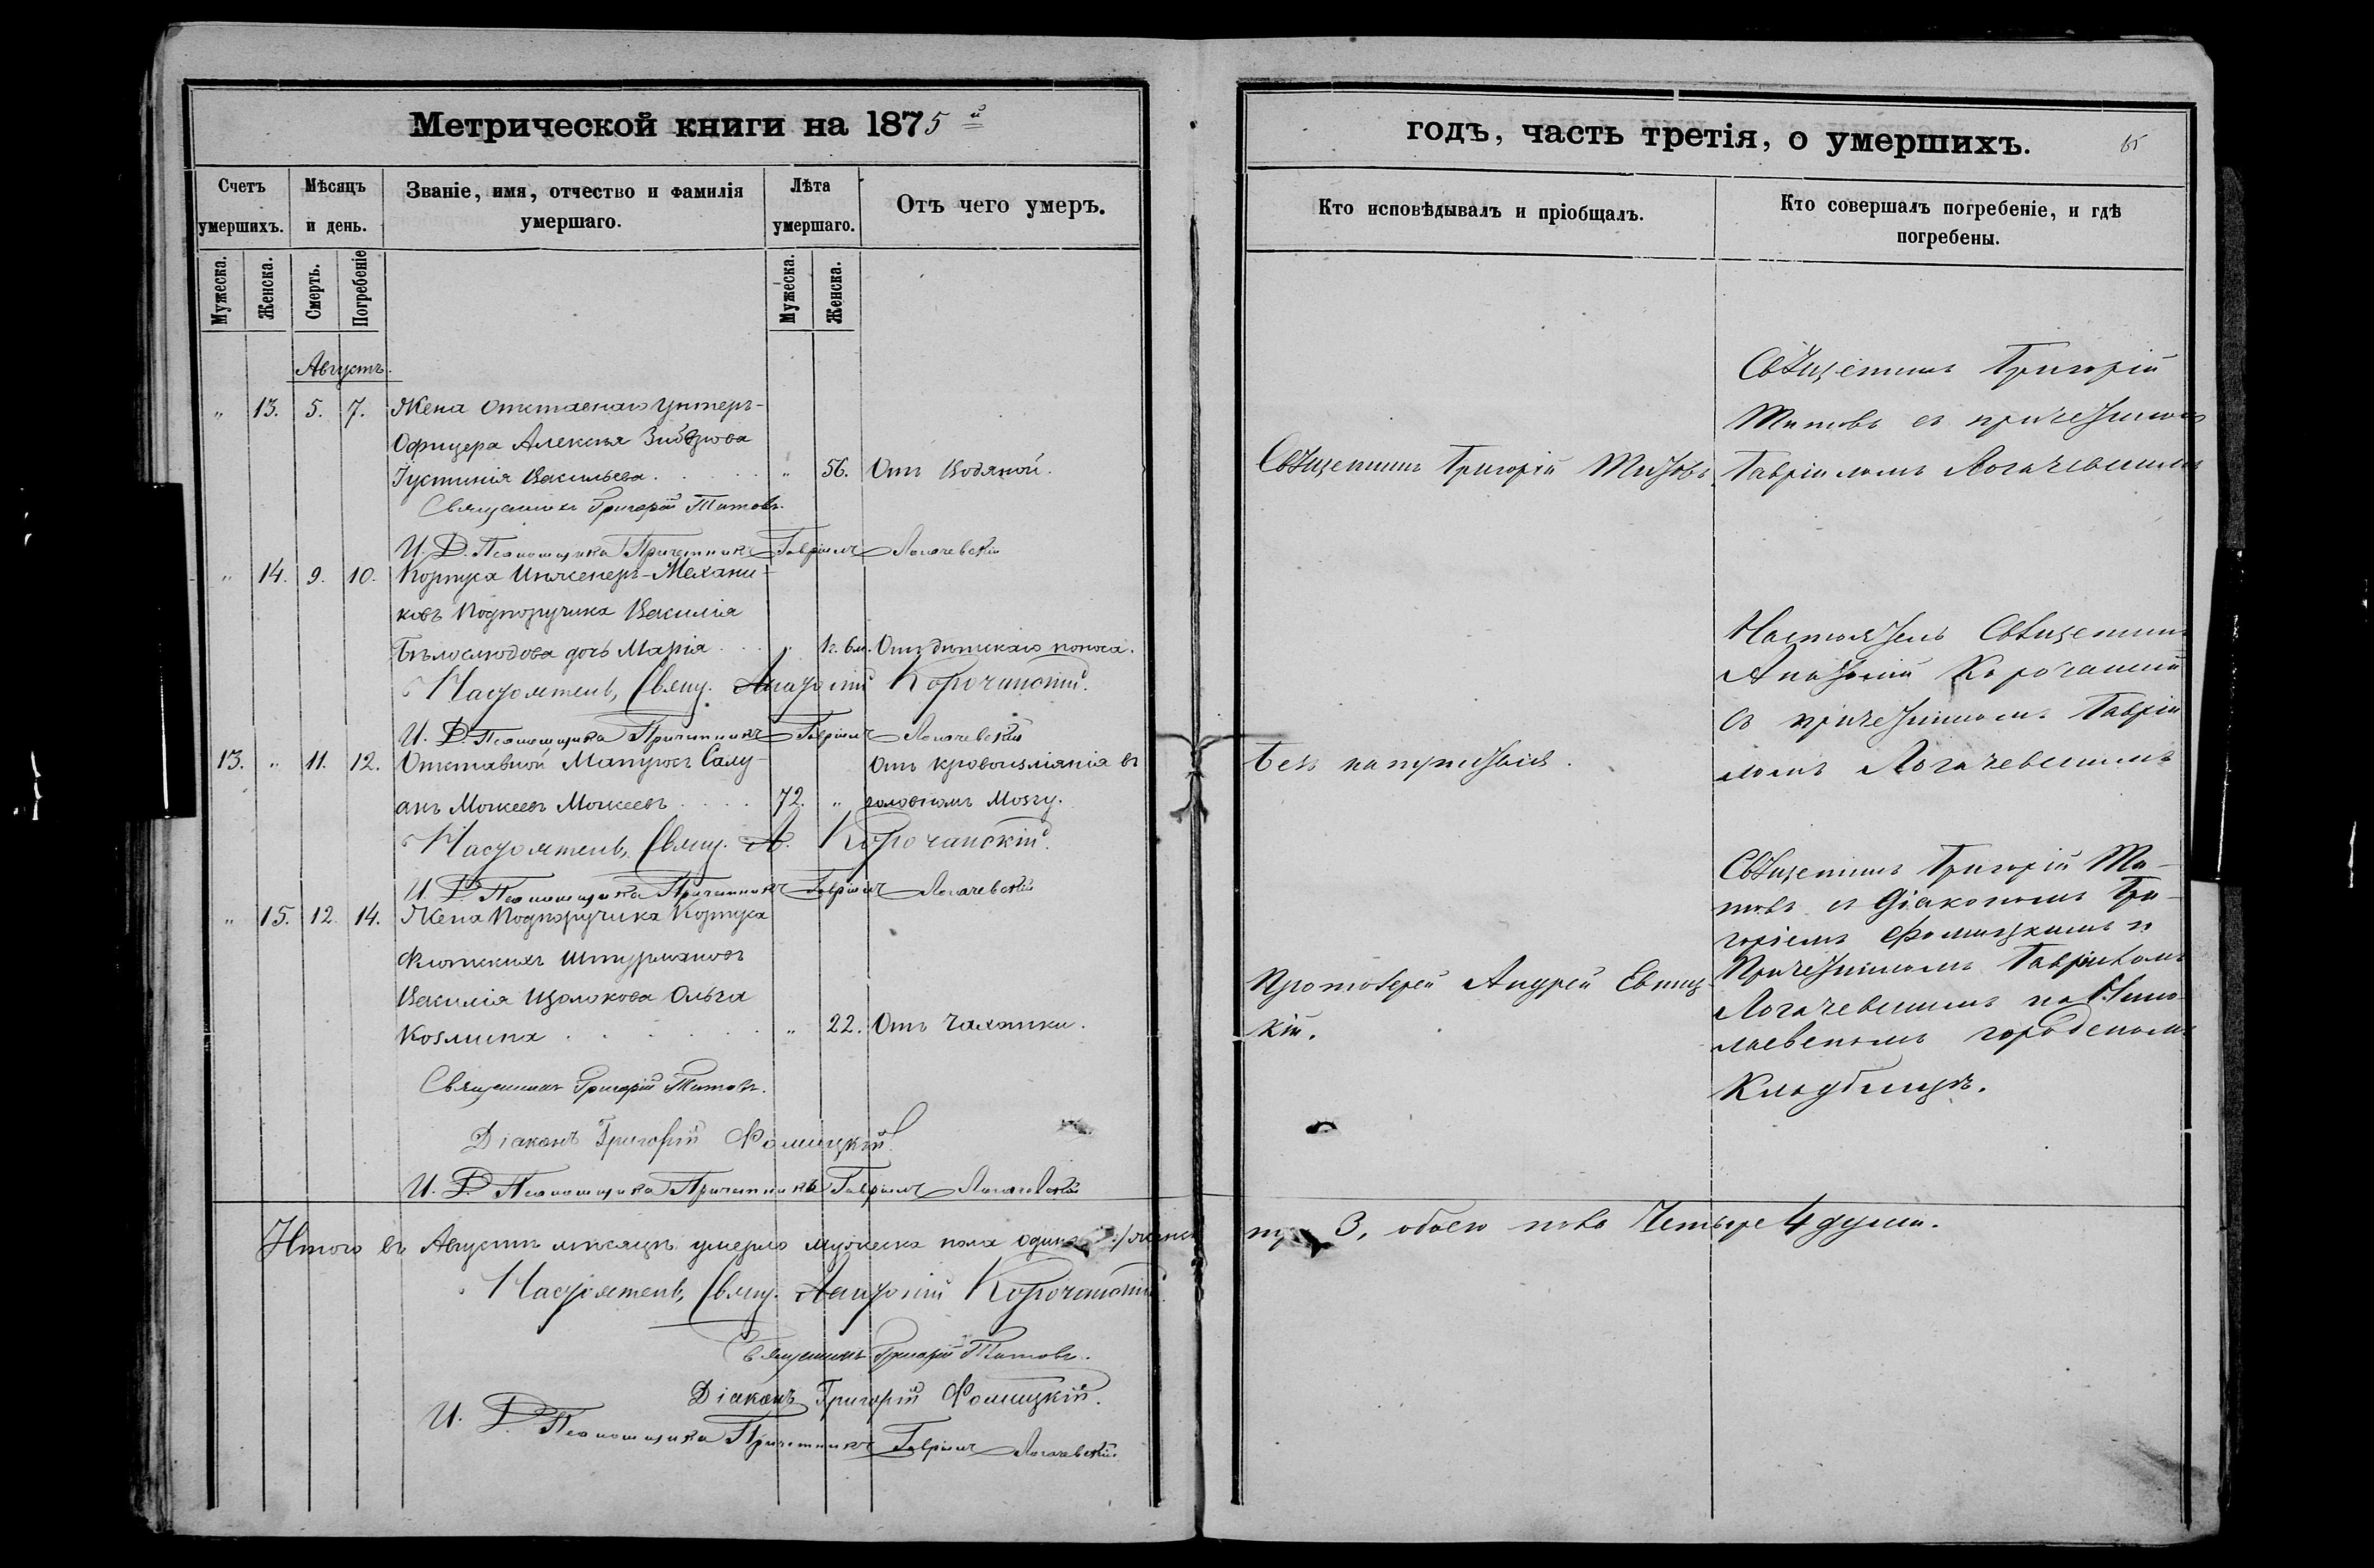 Метрической книги на 1875 й
Счетъ умершихъ.
Мѣсяцъ и день.
Званіе, имя, отчество и фамилія умершаго.
Лѣта умершаго.
Отъ чего умеръ.
Мужеска.
Женска.
Смерть.
Погребеніе
Мужеска.
Женска.
Августъ.
" 13. 5. 7. Жена Отставнаго Унтеръ-
Офицера Алексѣя
Іустинія Васильева. " 56. Отъ Водяной.
Священникъ Григорій Титовъ.
И. Д. Псаломщика Причетникъ Гавріилъ Логачевскій
" 14. 9. 10. Корпуса Инженеръ-Механи-
ковъ Подпоручика Василія
Бѣлослюдова дочь Марія " 1г. 6м. Отъ дѣтскаго поноса.
Настоятель, Свящ. Анатолій Корочанскій.
И. Д. Псаломщика Причетникъ Гавріилъ Логачевскій
13. " 11. 12. Отставной Матросъ Салу- Отъ кровоизліянія въ
анъ Мокеевъ Мокеевъ 72. " головномъ мозгу.
Настоятель, Свящ. А. Корочанскій.
И. Д. Псаломщика Причетникъ Гавріилъ Логачевскій
" 15. 12. 14. Жена Подпоручика Корпуса
Флотскихъ Штурмановъ
Василія Щолокова Ольга
Козмина " 22. Отъ Чахотки.
Священникъ Григорій Титовъ.
Діаконъ Григорій Фомицкій.
И. Д. Псаломщика Причетникъ Гавріилъ Логачевскій
Итого въ Августѣ мѣсяцѣ умерло мужеска пола одинъ 1, женск
Настоятель, Свящ. Анатолій Корочанскій
Священникъ Григорій Титовъ.
Діаконъ Григорій Фомицкій.
И. Д. Псаломщика Причетникъ Гавріилъ Логачевскій.
годъ, часть третія, о умершихъ.
65
Кто исповѣдывалъ и пріобщалъ.
Кто совершалъ погребеніе, и гдѣ погребены.
Священникъ Григорій
Титовъ съ причетникомъ
Священникъ Григорій Титовъ. Гавріиломъ Логачевскимъ
Настоятель Священникъ
Анатолій Корочанскій
съ причетникомъ Гавріи
Безъ напутствія. ломъ Логачевскимъ
Священникъ Григорій Ти-
товъ съ Діакономъ Гри-
горіемъ Фомицкимъ и
Причетникомъ Гавріиломъ
Протоіерей Андрей
Логачевскимъ на Нико-
кій. лаевскомъ городскомъ
Кладбищѣ.
3, обоего пола Четыре 4 души.